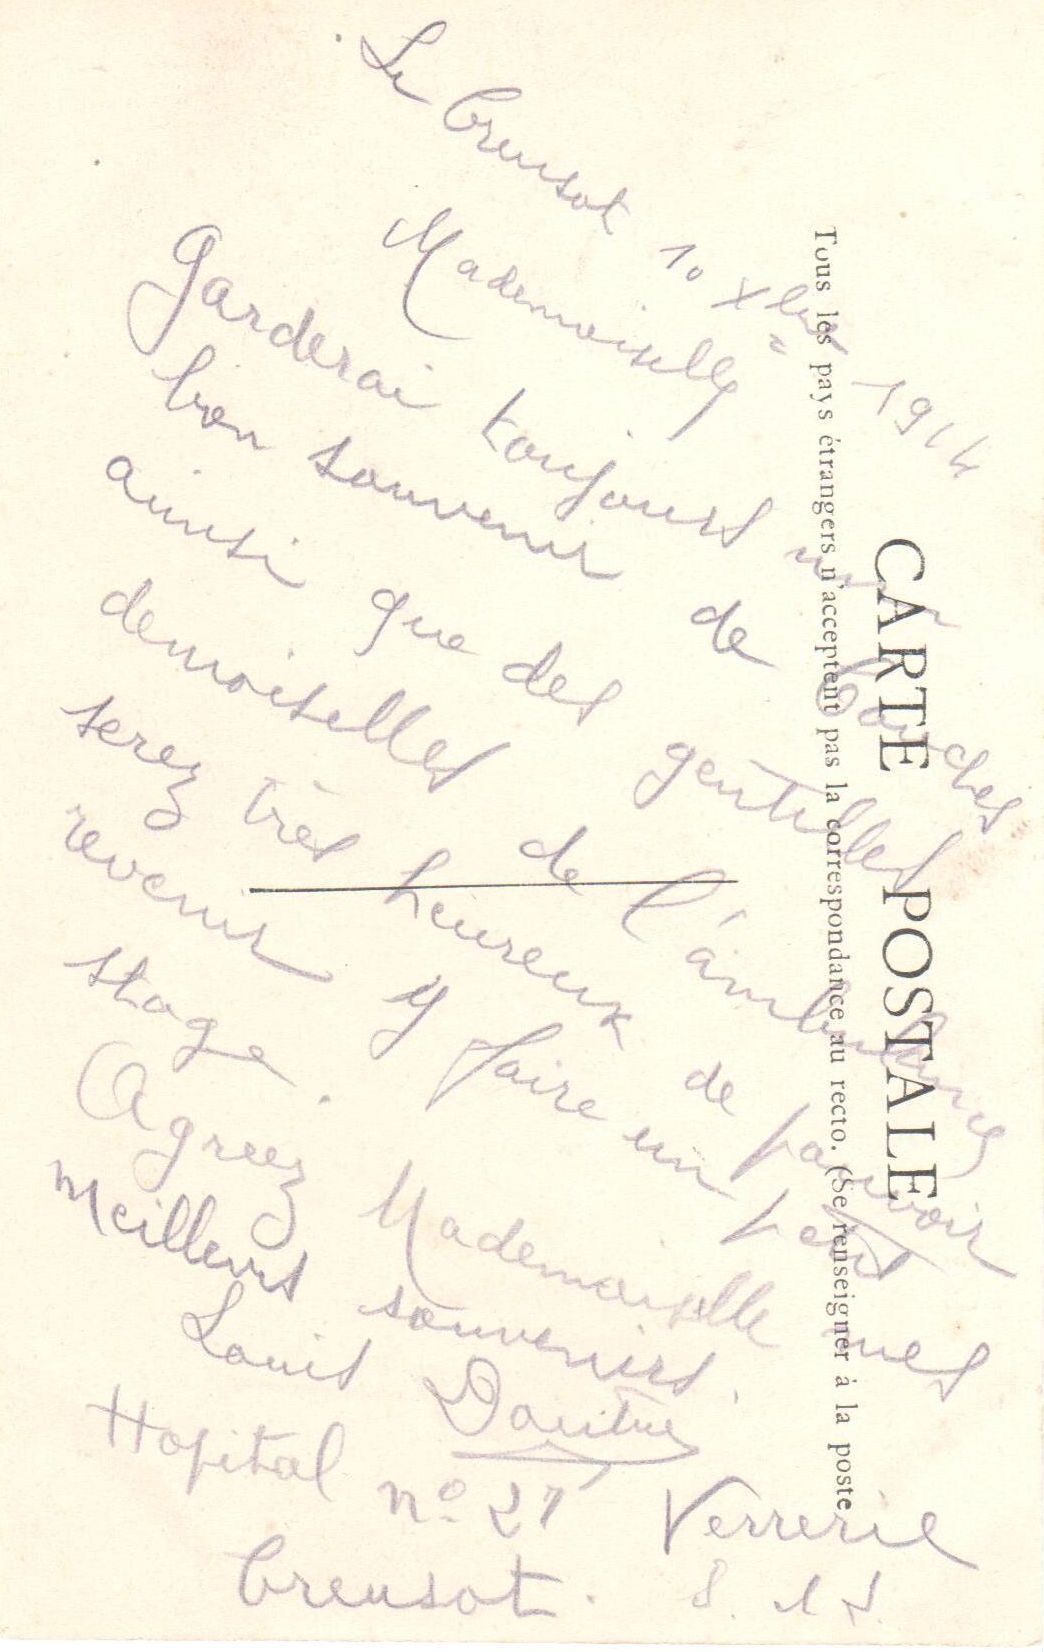 Le Creusot 10 Xbre 1914
Mademoiselle
Garderai toujours un
bon souvenir de Conches
ainsi que des gentilles
demoiselles de l'ambulance
serez très heureux de pouvoir
revenir y faire un petit
stage.
Agreez Mademoiselle mes
Meilleurs souvenirs.
Louis
Hopital no 27 Verrerie
Creusot. S. et L.
CARTE POSTALE
Tous les pays étrangers n'acceptent pas la correspondance au recto. (Se renseigner à la poste